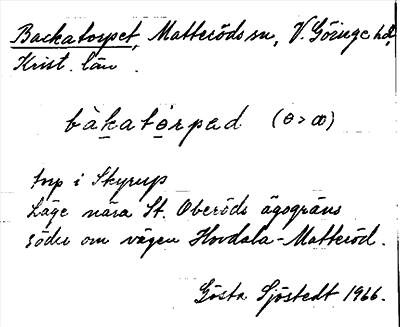 Backatorpet, Matteröds sn, V. Göinge hd,
Krist. län.
bàkatɵ́rpəd (ɵ > œ)
torp i Skyrup
Läge nära St. Oberöds ägogräns
söder om vägen Hovdala-Matteröd.
Gösta Sjöstedt 1966.